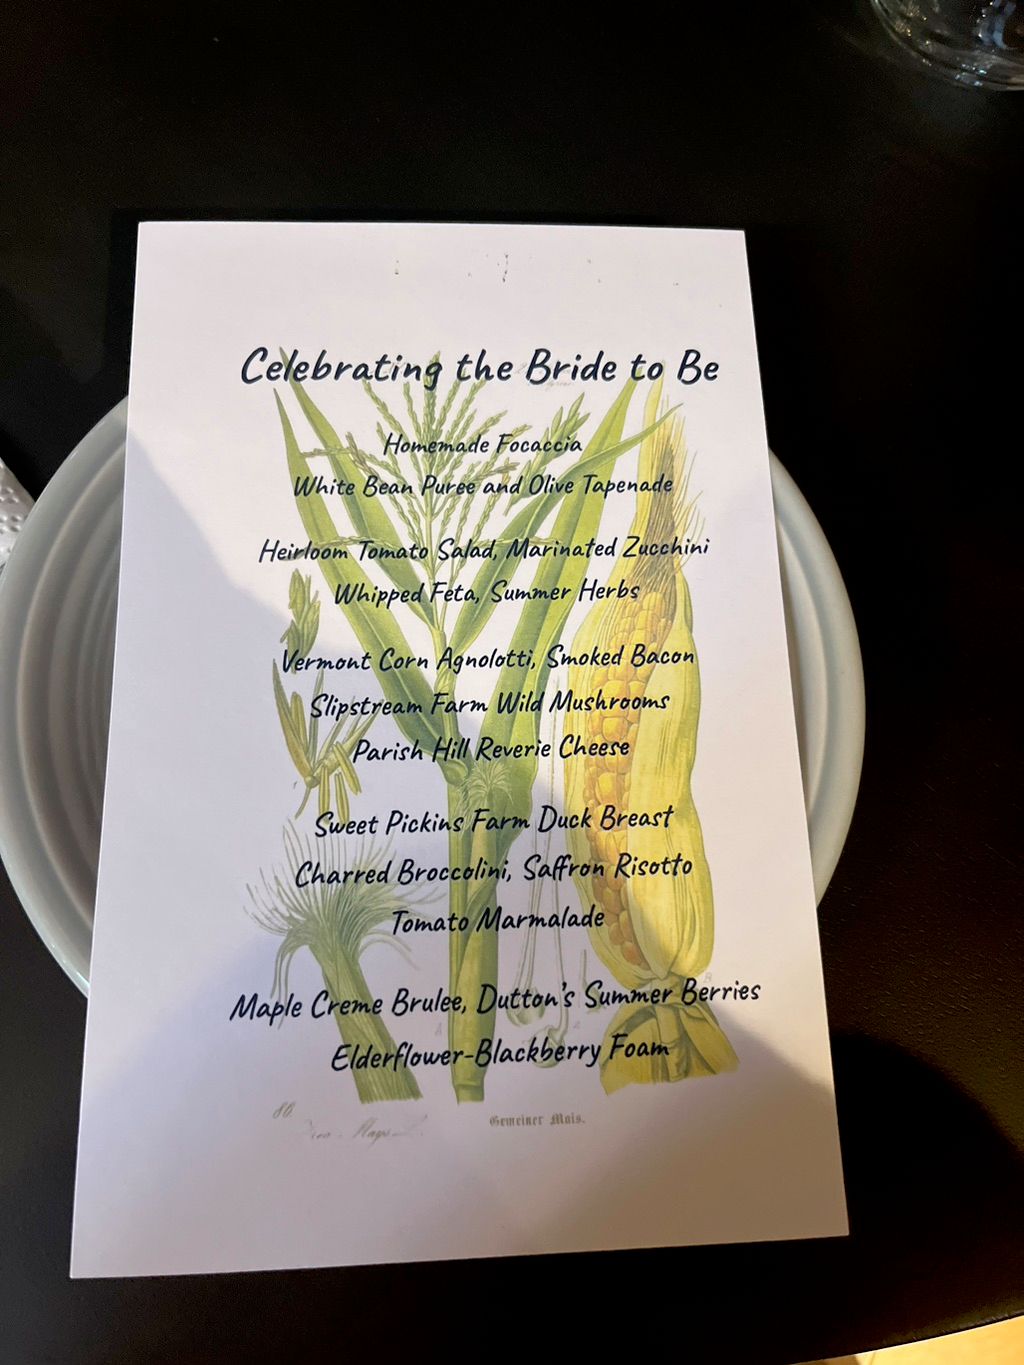 Celebrating the Bride to Be
Homemade Focaccia
White Bean Puree and Olive Tapenade
Heirloom Tomato Salad, Marinated Zucchini
Whipped Feta, Summer Herbs
Vermont Corn Agnolotti, Smoked Bacon
Slipstream Farm Wild Mushrooms
Parish Hill Reverie Cheese
Sweet Pickins Farm Duck Breast
Charred Broccolini, Saffron Risotto
Tomato Marmalade
Maple Creme Brulee, Dutton's Summer Berries
Elderflower-Blackberry Foam
86.
Gemeiner Mais.